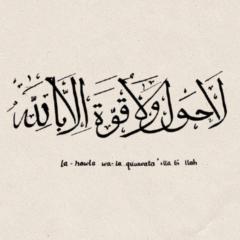 لَا حَوْلَ وَلَا قُوَّةَ إِلَّا بِاللَّهِ
la-howla wa-la quwwata 'illa bi llah